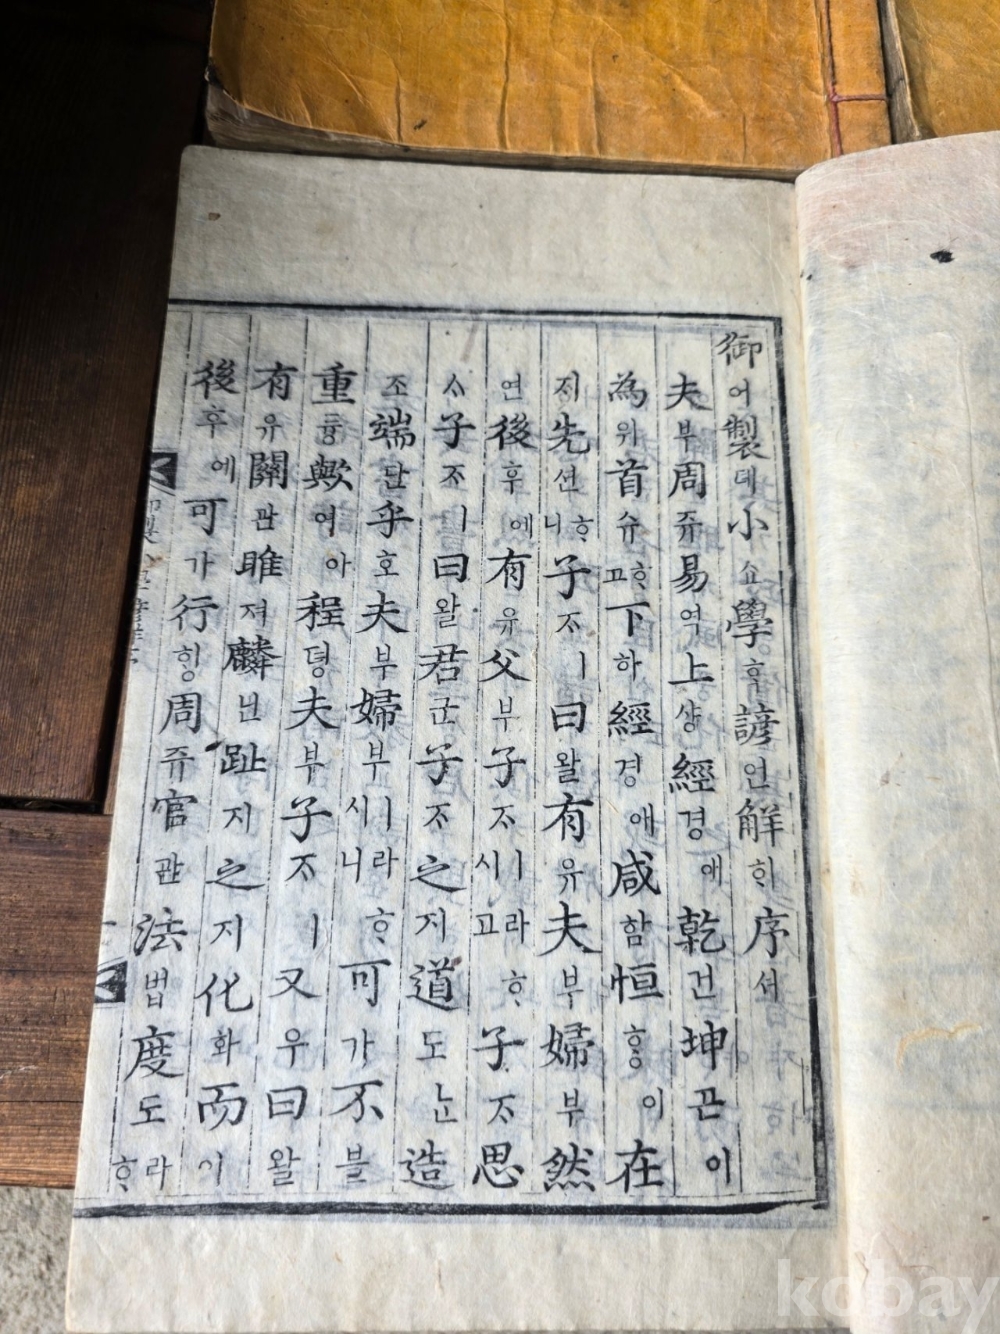 御어製뎨小쇼學ᄒᆞᆨ諺언解ᄒᆡ序셔
夫부周쥬易역上샹經경애乾건坤곤이
為위首슈ᄒᆞ고下하經경애咸함恒ᄒᆞᆼ이在
ᄌᆡ先션ᄒᆞ니子ᄌᆞㅣ曰왈有유夫부婦부然
연後후에有유父부子ᄌᆞㅣ라ᄒᆞ시고子ᄌᆞ思
ᄉᆞ子ᄌᆞㅣ曰왈君군子ᄌᆞ之지道도ᄂᆞᆫ造
조端단乎호夫부婦부ㅣ라ᄒᆞ시니可가不블
重듕歟여아程뎡夫부子ᄌᆞㅣ又우曰왈
有유關관雎져麟닌趾지之지化화而이
後후에可가行ᄒᆡᆼ周쥬官관法법度도라ᄒᆞ
kobay